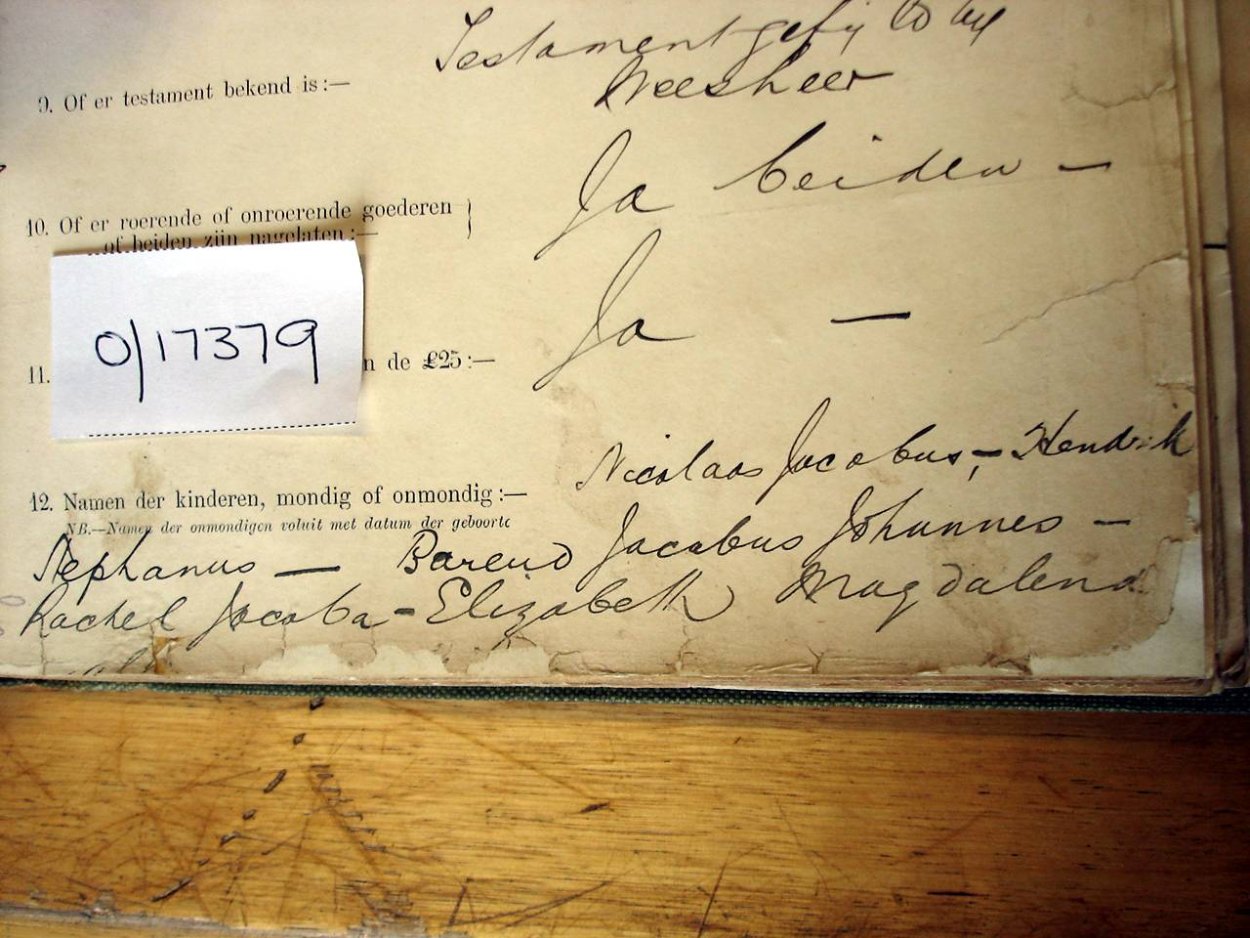 Testament
9. Of er testament bekend is:— Weesheer
10. Of er roerende of onroerende goederen Ja beiden —
of beiden zijn nagelaten:—
0/17379
11. n de £25:— Ja —
12. Namen der kinderen, mondig of onmondig:— Nicolaas Jacobus,— Hendrik
NB.—Namen der onmondigen voluit met datum der geboorte
Stephanus — Barend Jacobus Johannes —
Rachel Jacoba - Elizabeth Magdalena